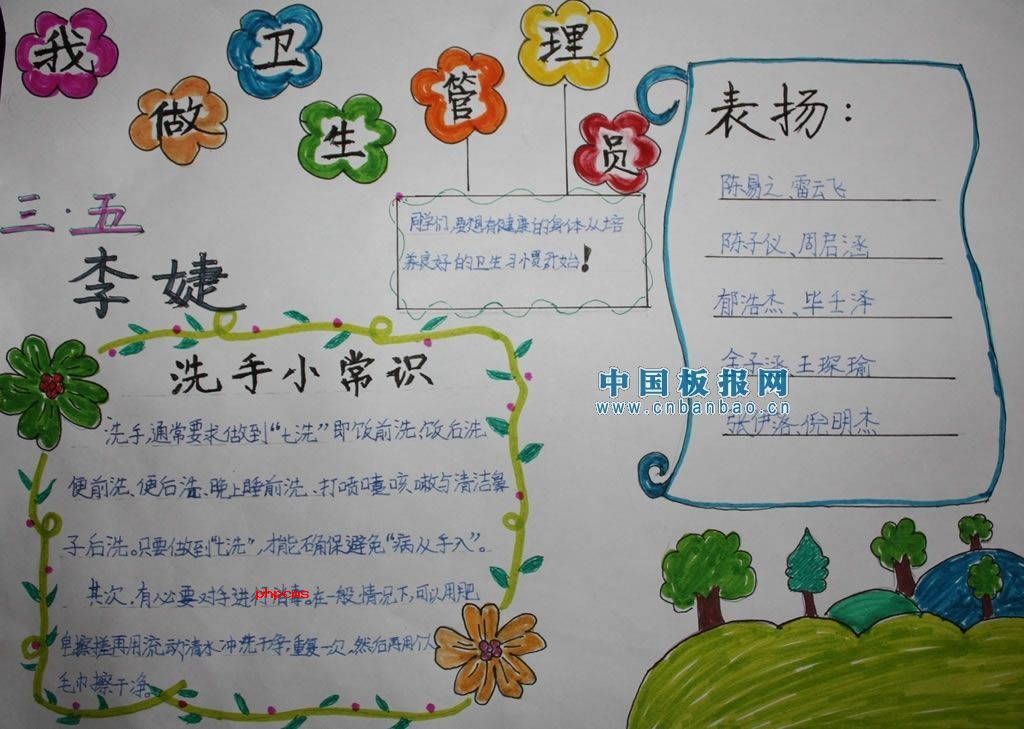 我做卫生管理员
三·五
李婕
同学们,要想有健康的身体从培
养良好的卫生习惯开始!
表扬:
陈易之、雷云飞
陈子仪、周启涵
郁浩杰、毕士泽
金子涵、王琛瑜
张伊洛、倪明杰
中国板报网
www.cnbanbao.cn
洗手小常识
洗手,通常要求做到“七洗”即饭前洗、饭后洗
便前洗、便后洗、晚上睡前洗、打喷嚏咳嗽与清洁鼻
子后洗。只要做到“七洗”,才能确保避免“病从手入”。
其次,有必要对手进行消毒。在一般情况下,可以用肥
phpcms
皂擦搓再用流动清水冲洗干净,重复一次,然后再用个人
毛巾擦干净。